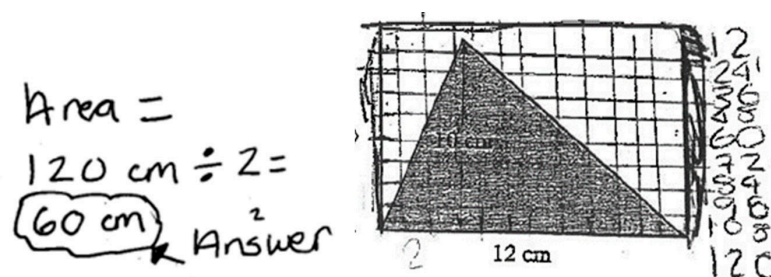 Area =
120 cm ÷ 2 =
60 cm ² Answer
10 cm
2
12 cm
12
24
36
48
60
72
84
96
108
120